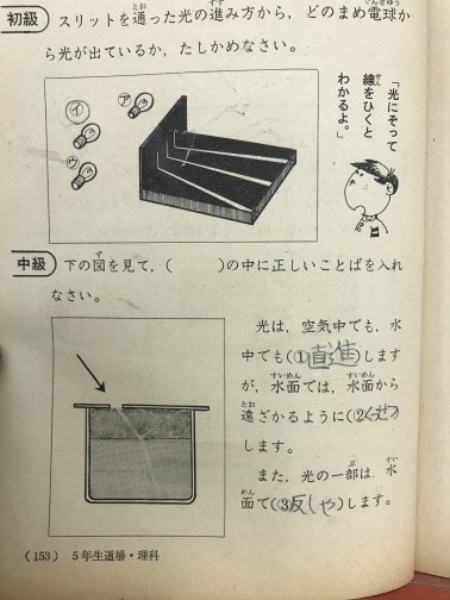 初級 スリットを通った光の進み方から，どのまめ電球か
ら光が出ているか，たしかめなさい。
「光にそって
線をひくと
わかるよ。」
ア
イ
ウ
中級 下の図を見て，(　　　)の中に正しいことばを入れ
なさい。
光は，空気中でも，水
中でも(①直進)します
が，水面では，水面から
遠ざかるように(②くせつ)
します。
また，光の一部は 水
面で(③反しゃ)します。
(153) 5年生道場・理科